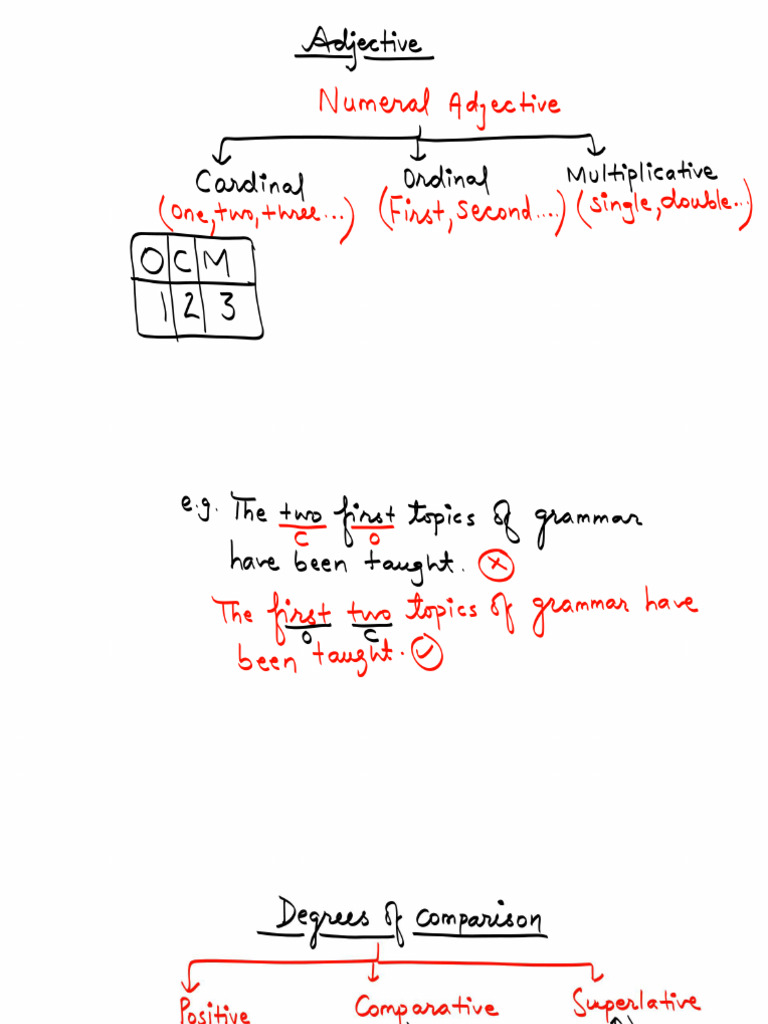 Adjective
Numeral Adjective
Cardinal Ordinal Multiplicative
(One, two, three...) (First, Second....) (single, double...)
O C M
1 2 3
e.g. The two first topics of grammar
C O
have been taught.
The first two topics of grammar have
O C
been taught.
Degrees of Comparison
Positive Comparative Superlative